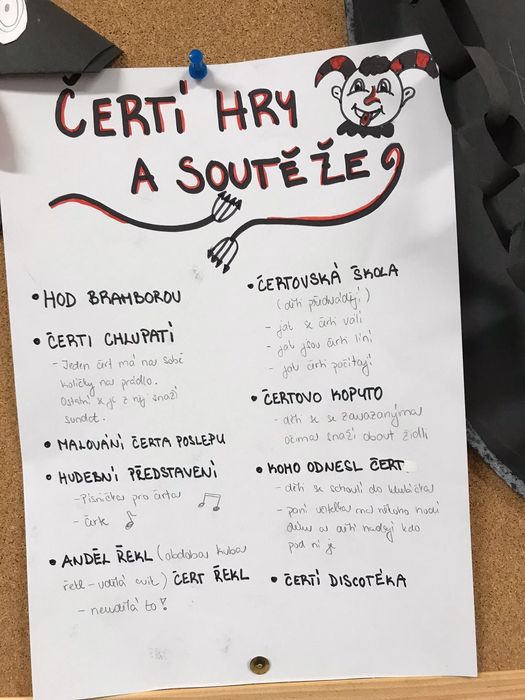 ČERTÍ HRY
A SOUTĚŽE
• HOD BRAMBOROU
• ČERTI CHLUPATÍ
- Jeden čert má na sobě
kolíčky na prádlo.
Ostatní se je z něj snaží
sundat.
• MALOVÁNÍ ČERTA POSLEPU
• HUDEBNÍ PŘEDSTAVENÍ
- Písnička pro čerta
- čerte
• ANDĚL ŘEKL (obdoba kuba
řekl - udělá cvik) ČERT ŘEKL
- neudělá to!
• ČERTOVSKÁ ŠKOLA
(děti předvádějí)
- jak se čerti válí
- jak jsou čerti líní
- jak čerti počítají
• ČERTOVO KOPYTO
- děti se se zavázanýma
očima snaží obout židli
• KOHO ODNESL ČERT
- děti se schoulí do klubíčka
- paní učitelka na někoho hodí
deku a děti hádají kdo
pod ní je
• ČERTÍ DISCOTÉKA